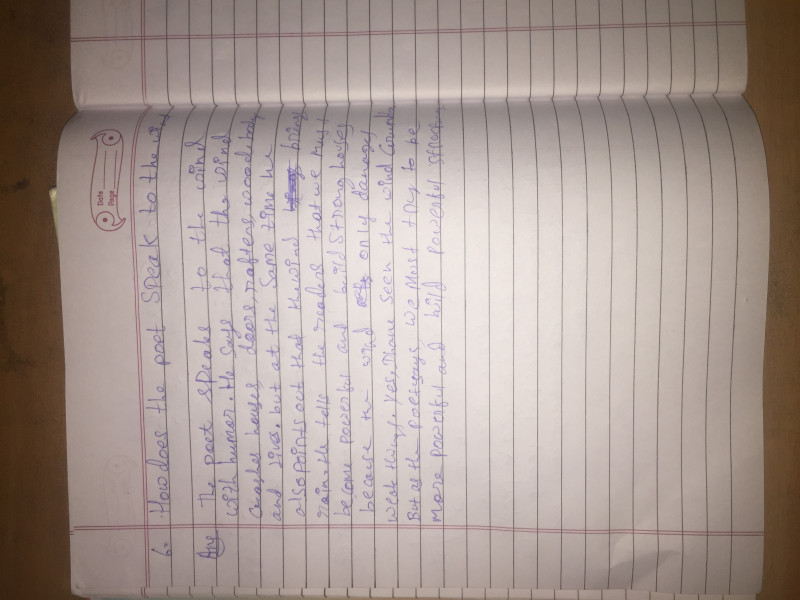 Date
Page
6. How does the poet speak to the wind
Ans The poet speaks to the wind
with humor. He says that the wind
crashes houses, doors, rafters, wood, body
and lives. but at the same time he
also points out that the wind brings
rain the tells the readers that we must
become powerful and build strong houses
because the wind only damages
weak things. Yes, I have seen the wind
But as the poet says we must try to be
more powerful and build powerful